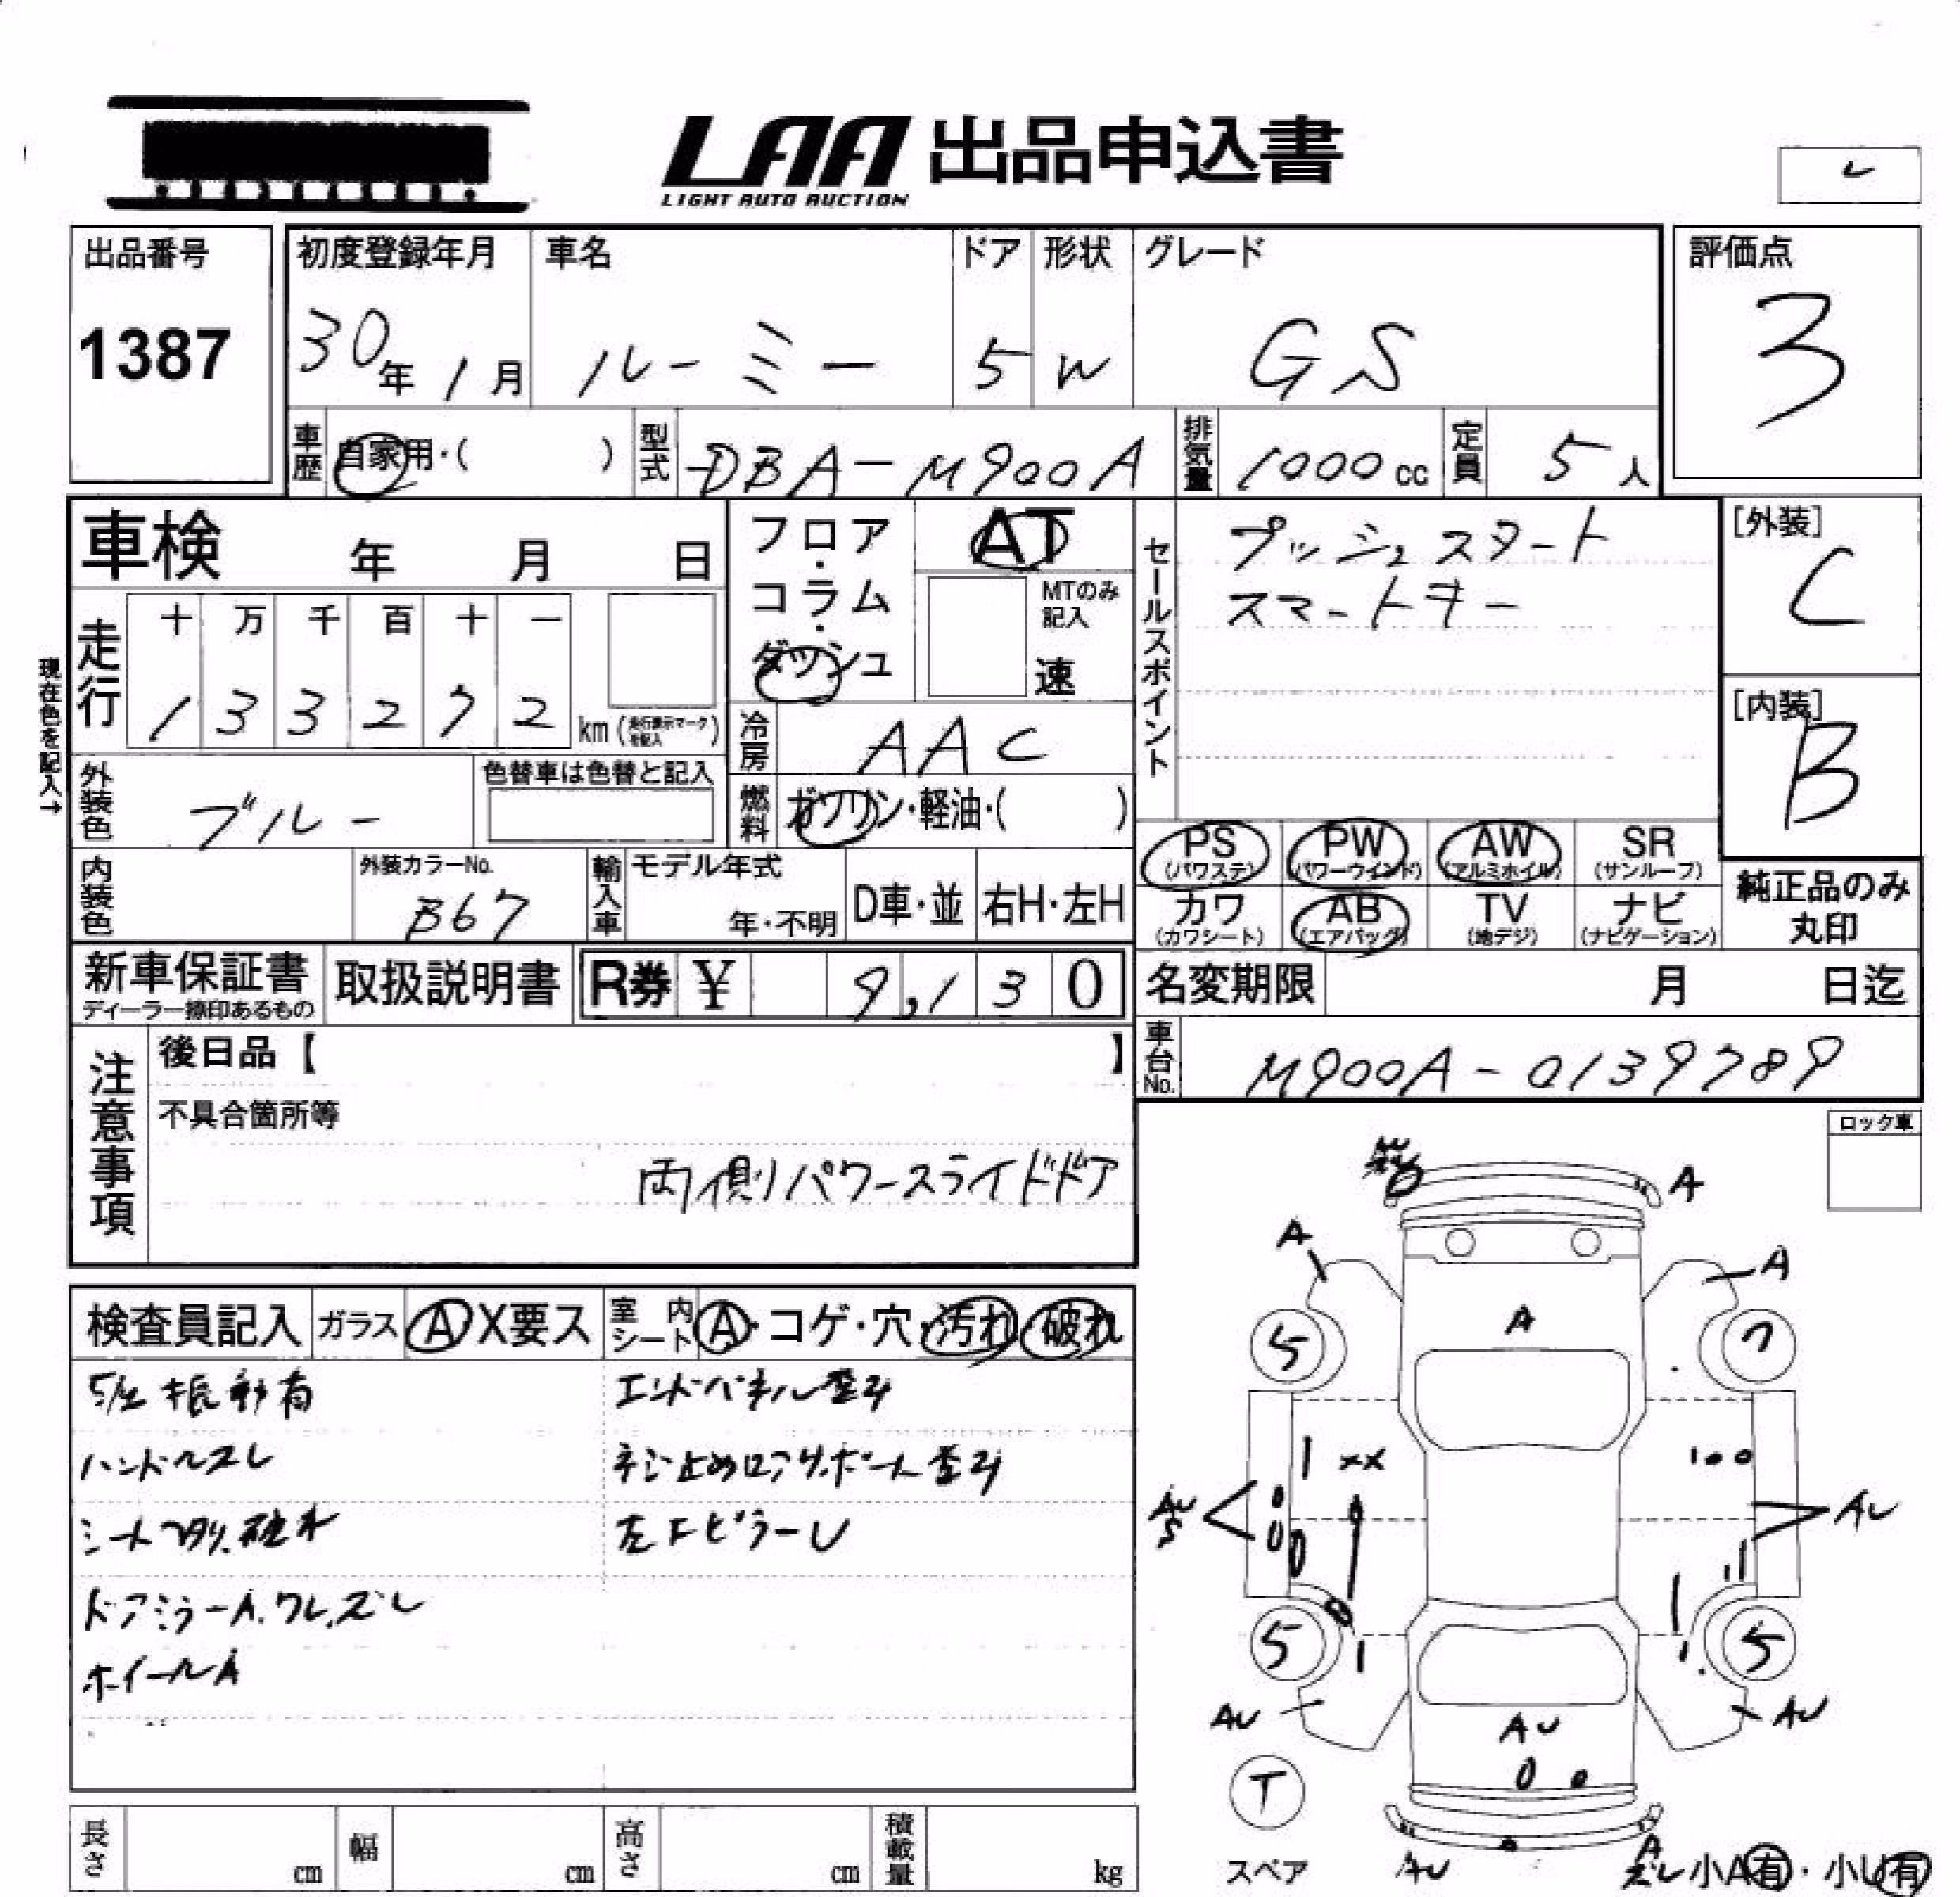 LAA 出品申込書
LIGHT AUTO AUCTION
出品番号
1387
初度登録年月
30年 1月
車名
ルーミー
ドア
5
形状
W
グレード
GS
評価点
3
車歴
自家用・( )
型式
DBA-M900A
排気量
1000cc
定員
5人
車検 年 月 日
フロア・コラム・ダッシュ
AT
MTのみ記入
速
セールスポイント
プッシュスタート
スマートキー
[外装]
C
[内装]
B
現在色を記入→
走行
十 万 千 百 十 一
1 3 3 2 7 2 km (走行表示マークを記入)
冷房
AAC
外装色
ブルー
色替車は色替と記入
燃料
ガソリン・軽油・( )
PS (パワステ)
PW (パワーウインド)
AW (アルミホイル)
SR (サンルーフ)
内装色
外装カラーNo.
B67
輸入車
モデル年式
年・不明
D車・並
右H・左H
カワ (カワシート)
AB (エアバッグ)
TV (地デジ)
ナビ (ナビゲーション)
純正品のみ
丸印
新車保証書
ディーラー捺印あるもの
取扱説明書
R券 ¥ 9,130
名変期限 月 日迄
車台No.
M900A-0139789
注意事項
後日品【 】
不具合箇所等
両側パワースライドドア
ロック車
検査員記入
ガラス
A X要ス
室内シート
A・コゲ・穴・汚れ 破れ
振動有
エンドパネル歪み
ハンドルスレ
ネジ止めロアサポート歪み
左Fピラー U
ドアミラーA.ワレ.ズレ
ホイールA
A
A
A
A
5
7
XX
AU
S
AU
5
5
AU
AU
AU
T
スペア
AU
A
ズレ
小A有・小U有
長さ cm
幅 cm
高さ cm
積載量 kg